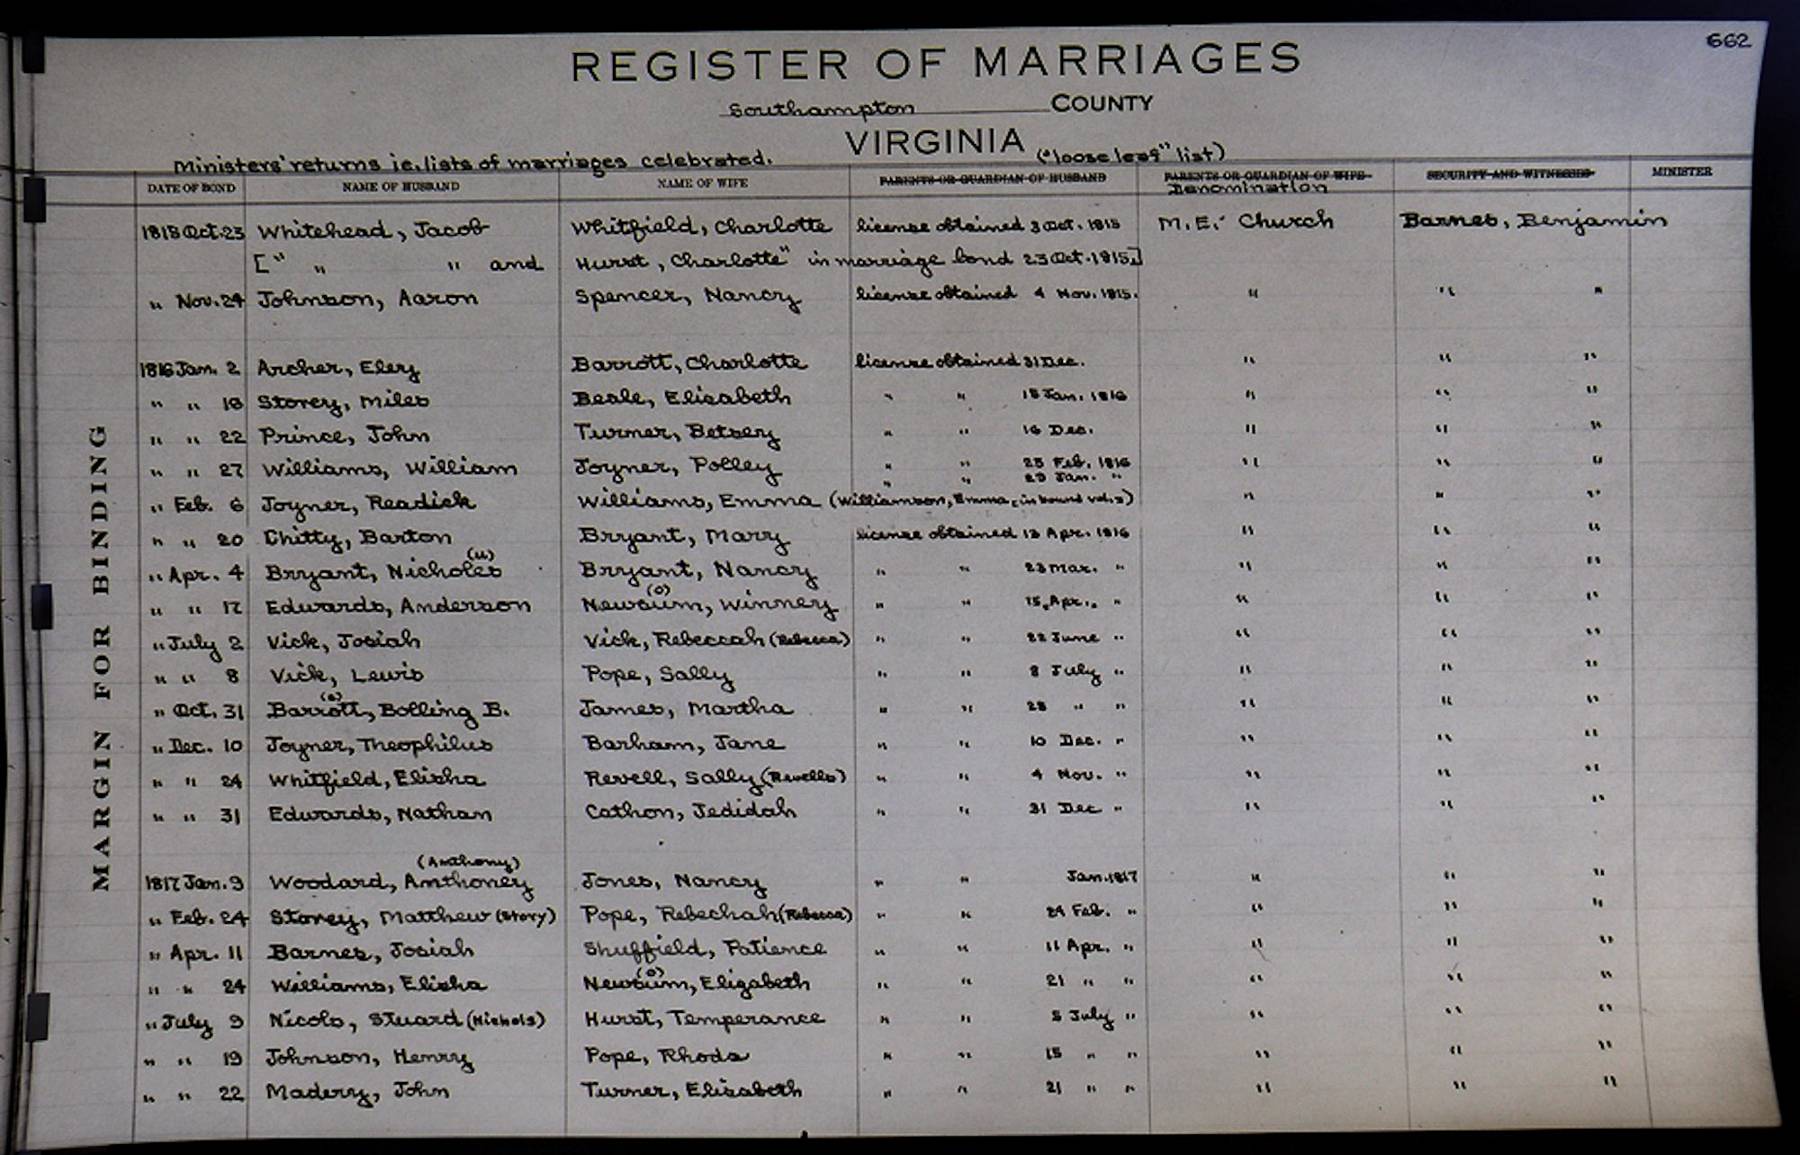 662
REGISTER OF MARRIAGES
Southampton COUNTY
VIRGINIA
Ministers' returns i.e. lists of marriages celebrated. ("loose leaf" list)
DATE OF BOND NAME OF HUSBAND NAME OF WIFE PARENTS OR GUARDIAN OF HUSBAND PARENTS OR GUARDIAN OF WIFE SECURITY AND WITNESSES MINISTER
Denomination
1815 Oct. 23 Whitehead, Jacob Whitfield, Charlotte license obtained 3 Oct. 1815 M. E. Church Barnes, Benjamin
[" " " and Hurst, Charlotte" in marriage bond 23 Oct. 1815]
" Nov. 24 Johnson, Aaron Spencer, Nancy license obtained 4 Nov. 1815. " " "
1816 Jan. 2 Archer, Elery Barrott, Charlotte license obtained 31 Dec. " " "
" " 18 Storey, Miles Beale, Elisabeth " " 18 Jan. 1816 " " "
" " 22 Prince, John Turner, Betsey " " 16 Dec. " " "
" " 27 Williams, William Joyner, Polley " " 25 Feb. 1816 " " "
" " 29 Jan. "
" Feb. 6 Joyner, Readick Williams, Emma (Williamson, Emma, in bound vol.) " " "
" " 20 Chitty, Barton Bryant, Mary license obtained 13 Apr. 1816 " " "
(u)
" Apr. 4 Bryant, Nicholes Bryant, Nancy " " 23 Mar. " " " "
(o)
" " 17 Edwards, Anderson Newsum, Winney " " 15 Apr. " " " "
" July 2 Vick, Josiah Vick, Rebeccah (Rebecca) " " 22 June " " " "
" " 8 Vick, Lewis Pope, Sally " " 8 July " " " "
(e)
" Oct. 31 Barrott, Bolling B. James, Martha " " 28 " " " " "
" Dec. 10 Joyner, Theophilus Barham, Jane " " 10 Dec. " " " "
" " 24 Whitfield, Elisha Revell, Sally (Revells) " " 4 Nov. " " " "
" " 31 Edwards, Nathan Cathon, Jedidah " " 31 Dec " " " "
(Anthony)
1817 Jan. 9 Woodard, Anthoney Jones, Nancy " " Jan. 1817 " " "
" Feb. 24 Storey, Matthew (Story) Pope, Rebechah (Rebecca) " " 24 Feb. " " " "
" Apr. 11 Barnes, Josiah Shuffield, Patience " " 11 Apr. " " " "
(o)
" " 24 Williams, Elisha Newsum, Elizabeth " " 21 " " " " "
" July 9 Nicols, Stuard (Nichols) Hurst, Temperance " " 5 July " " " "
" " 19 Johnson, Henry Pope, Rhoda " " 15 " " " " "
" " 22 Madery, John Turner, Elisabeth " " 21 " " " " "
MARGIN FOR BINDING